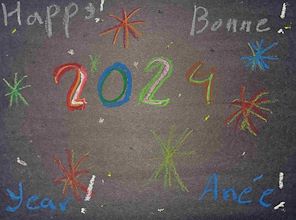 Happy! Bonne!
2024
Year! Anée!